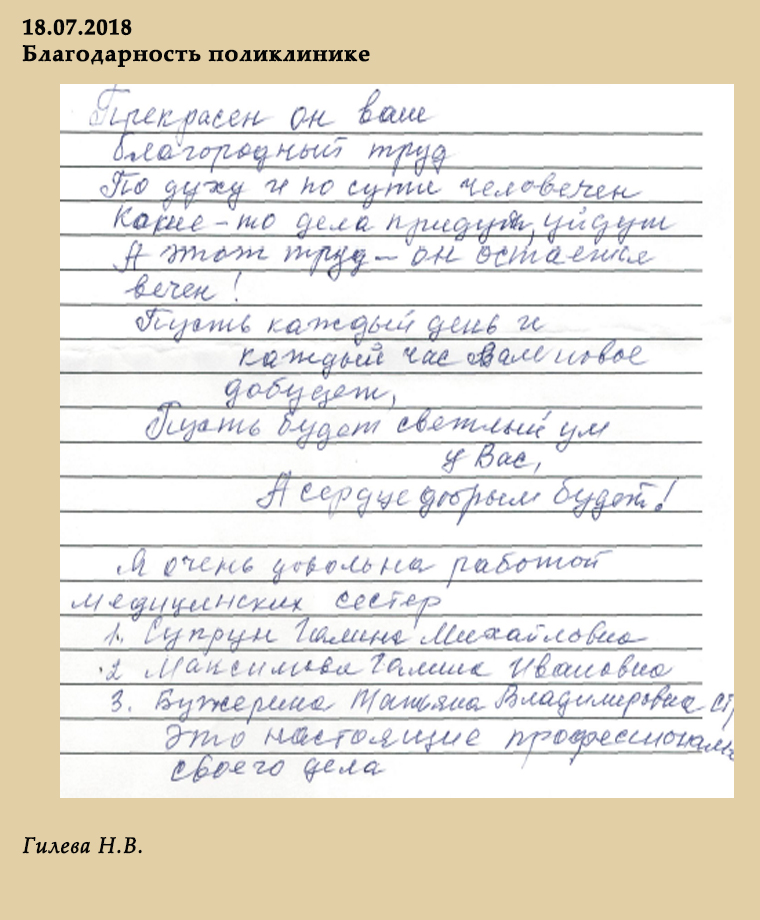 18.07.2018
Благодарность поликлинике
Прекрасен он ваш
благородный труд
По духу и по сути человечен
Какие-то дела придут, уйдут
А этот труд - он остается
вечен!
Пусть каждый день и
каждый час Вам новое
добудет,
Пусть будет светлый ум
у Вас,
А сердце добрым будет!
Я очень довольна работой
медицинских сестер
1. Супрун Галина Михайловна
2 Максимова Галина Ивановна
3. Бужерина Татьяна Владимировна
Это настоящие профессионалы
своего дела
Гилева Н.В.